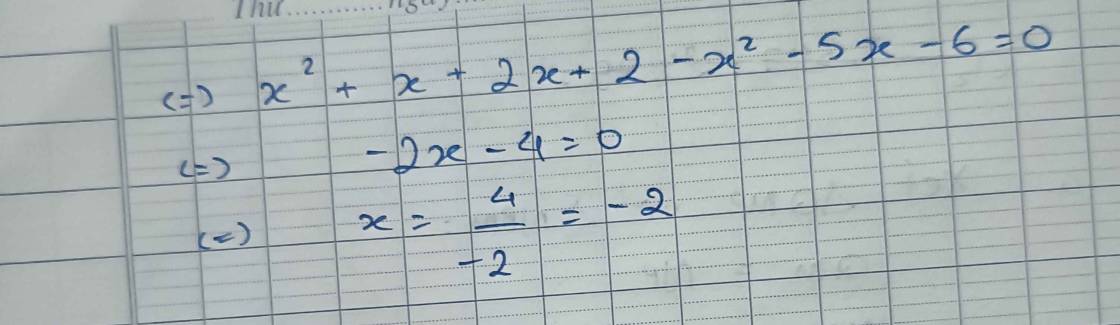 Thứ............ngày...
(=) x² + x + 2x + 2 - x² - 5x - 6 = 0
(=) -2x - 4 = 0
(=) x = 4/-2 = -2